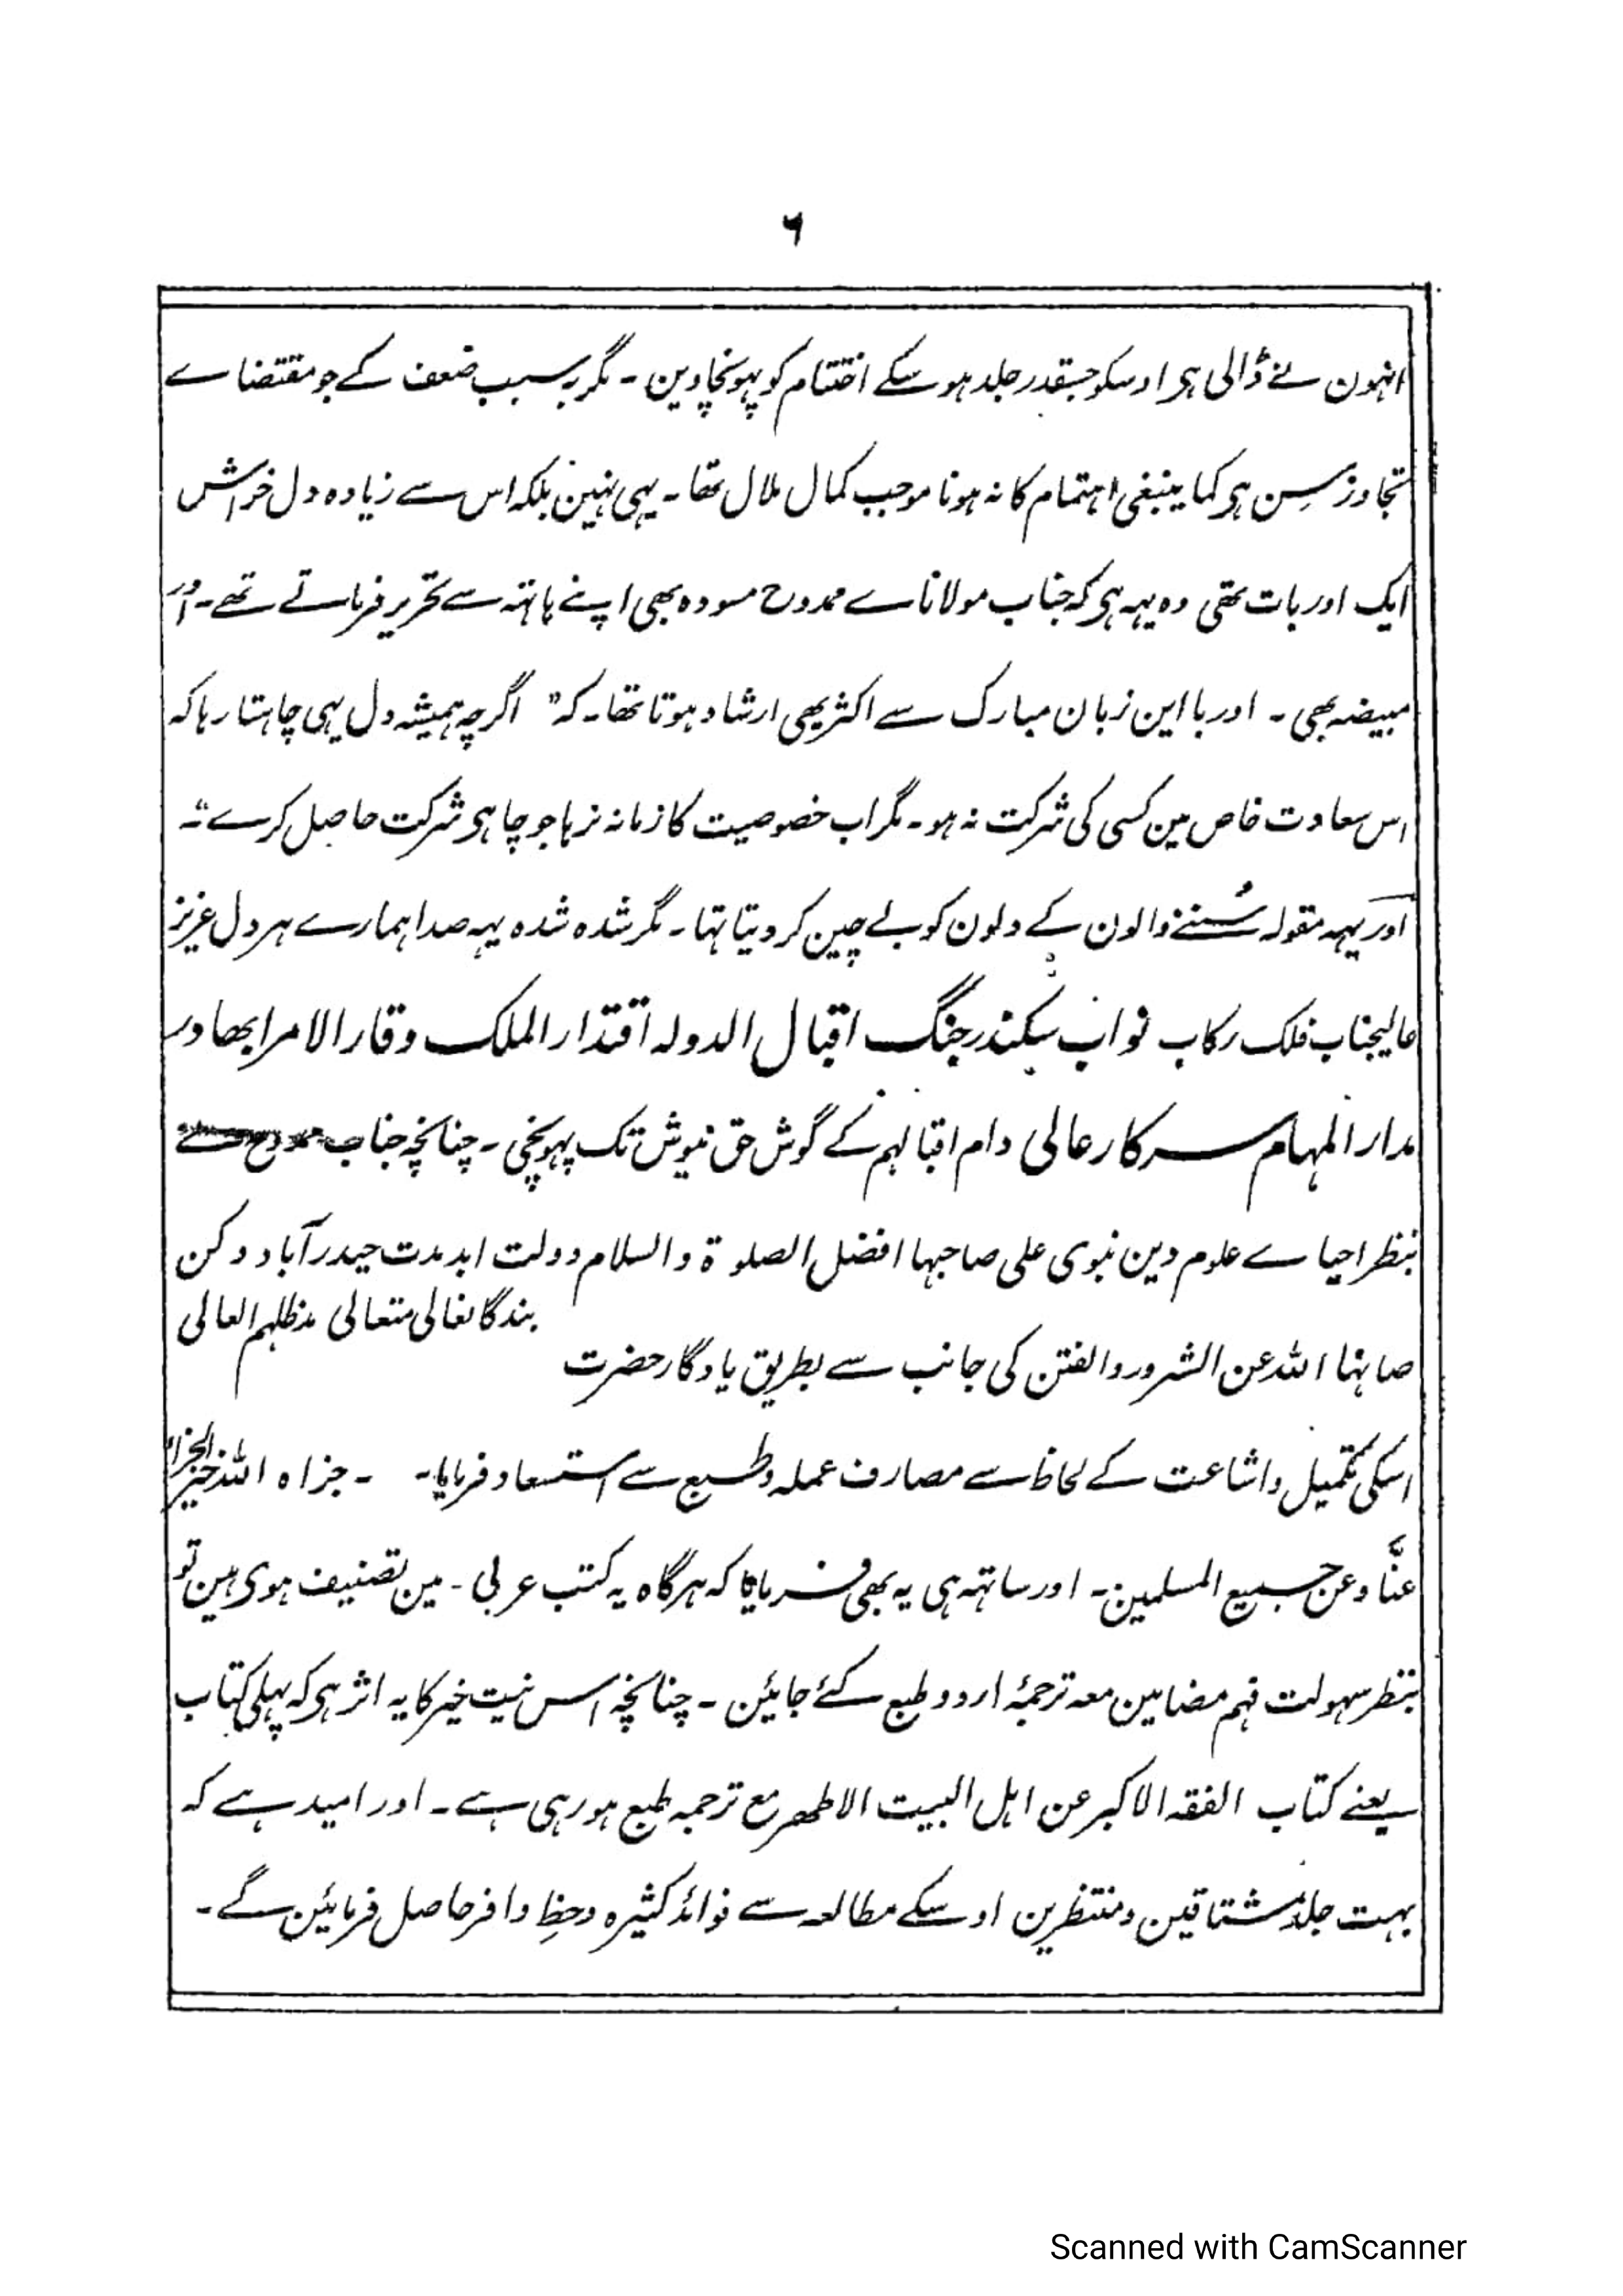 ۶
انہون نے ڈالی ہی اوسکو جسقدر جلد ہو سکے اختتام کو پہونچا دین ۔ مگر بہ سبب ضعف کے جو مقتضاے
تجاوز سِن ہی کما ینبغی اہتمام کا نہ ہونا موجب کمال ملال تھا ۔ یہی نہین بلکہ اس سے زیادہ دل خراش
ایک اور بات تھی وہ یہہ ہی کہ جناب مولاناے ممدوح مسودہ بھی اپنے ہاتہہ سے تحریر فرماتے تھے ۔ اور
مبیضہ بھی ۔ اور با این زبان مبارک سے اکثر بھی ارشاد ہوتا تھا ۔ کہ " اگرچہ ہمیشہ دل یہی چاہتا رہا کہ
اس سعادت خاص مین کسی کی شرکت نہ ہو ۔ مگر اب خصوصیت کا زمانہ نرہا جو چاہی شرکت حاصل کرے " ۔
اور یہہ مقولہ سُننے والون کے دلون کو بے چین کر دیتا تہا ۔ مگر شدہ شدہ یہہ صدا ہمارے ہر دل عزیز
عالیجناب فلک رکاب نواب سکندر جنگ اقبال الدولہ اقتدار الملک وقار الامرا بھادر
مدار المہام سرکار عالی دام اقبالہم کے گوش حق نیوش تک پہونچی ۔ چنانچہ جناب ممدوح نے
بنظر احیاے علوم دین نبوی علی صاحبہا افضل الصلوۃ والسلام دولت ابد مدت حیدرآباد دکن
صانہا اللہ عن الشرور والفتن کی جانب سے بطریق یادگار حضرت بندگانعالی متعالی مدظلہم العالی
اسکی تکمیل و اشاعت کے لحاظ سے مصارف عملہ و طبع سے استسعاد فرمایا ۔ ۔ جزاہ اللہ خیر الجزا
عنَّا وعن جمیع المسلمین ۔ اور ساتہہ ہی یہ بھی فرمایا کہ ہرگاہ یہ کتب عربی ۔ مین تصنیف ہوی ہین تو
بنظر سہولت فہم مضامین معہ ترجمۂ اردو طبع کئے جائین ۔ چنانچہ اس نیت خیر کا یہ اثر ہی کہ پہلی کتاب
یعنے کتاب الفقہ الاکبر عن اہل البیت الاطھر مع ترجمہ طبع ہو رہی ہے ۔ اور امید ہے کہ
بہت جلد مشتاقین و منتظرین اوسکے مطالعہ سے فوائد کثیرہ و حظِ وافر حاصل فرمائین گے ۔
Scanned with CamScanner